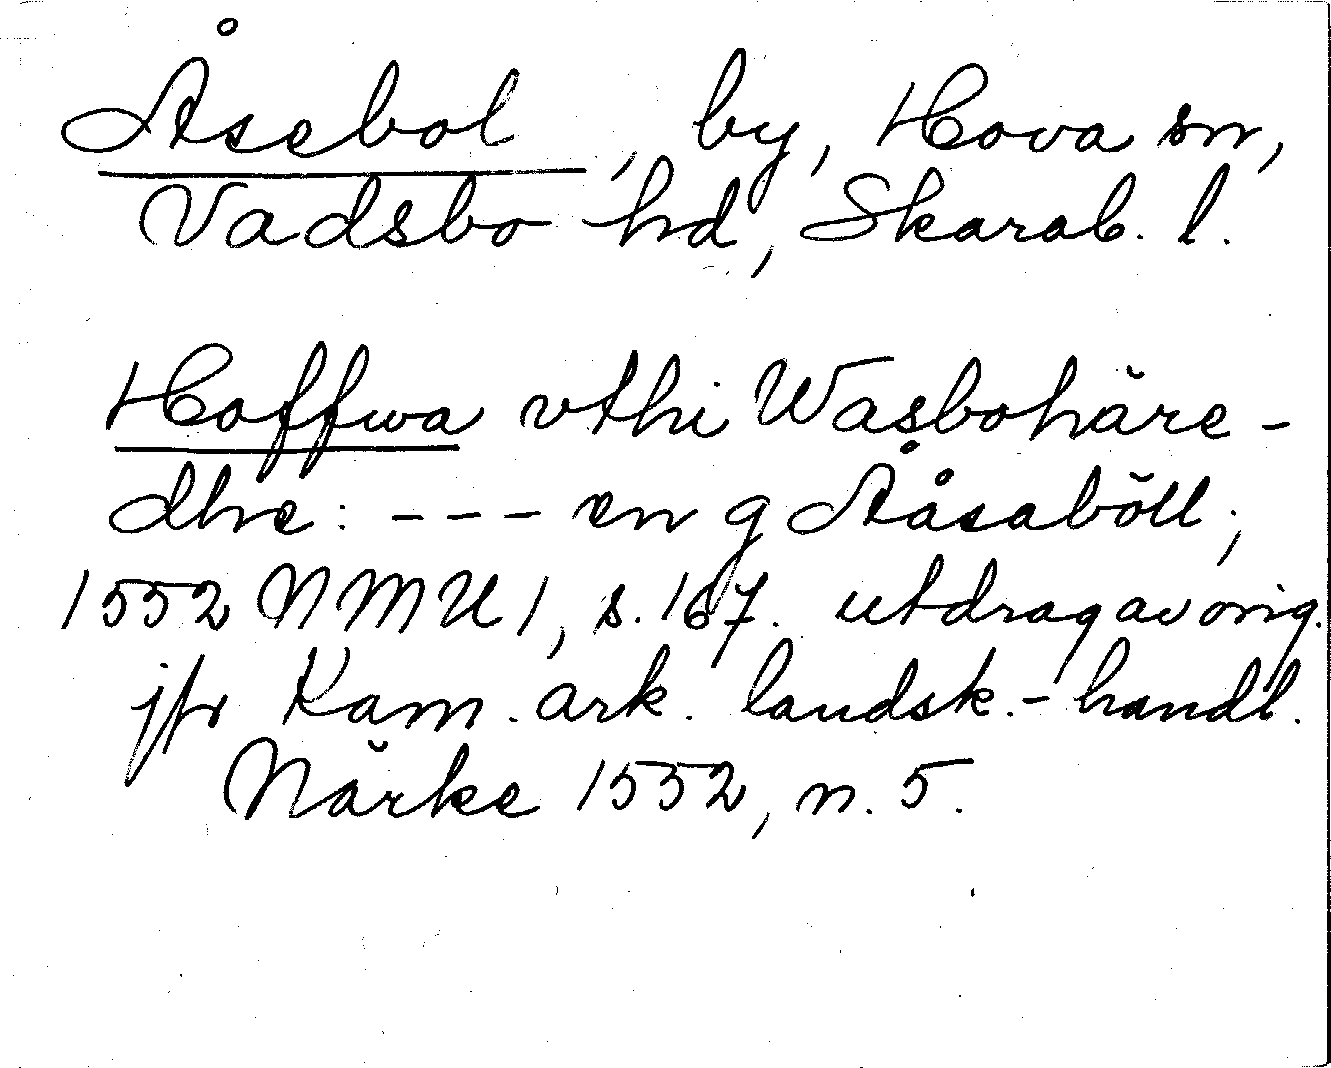 Åsebol, by, Hova sn,
Vadsbo hd, Skarab. l.
Hoffwa vthi Wasbohäre-
dhe: --- en g Ååsaböll;
1552 NMU 1, s. 167. utdrag av orig.
jfr Kam. ark. landsk.-handl.
Närke 1552, n. 5.